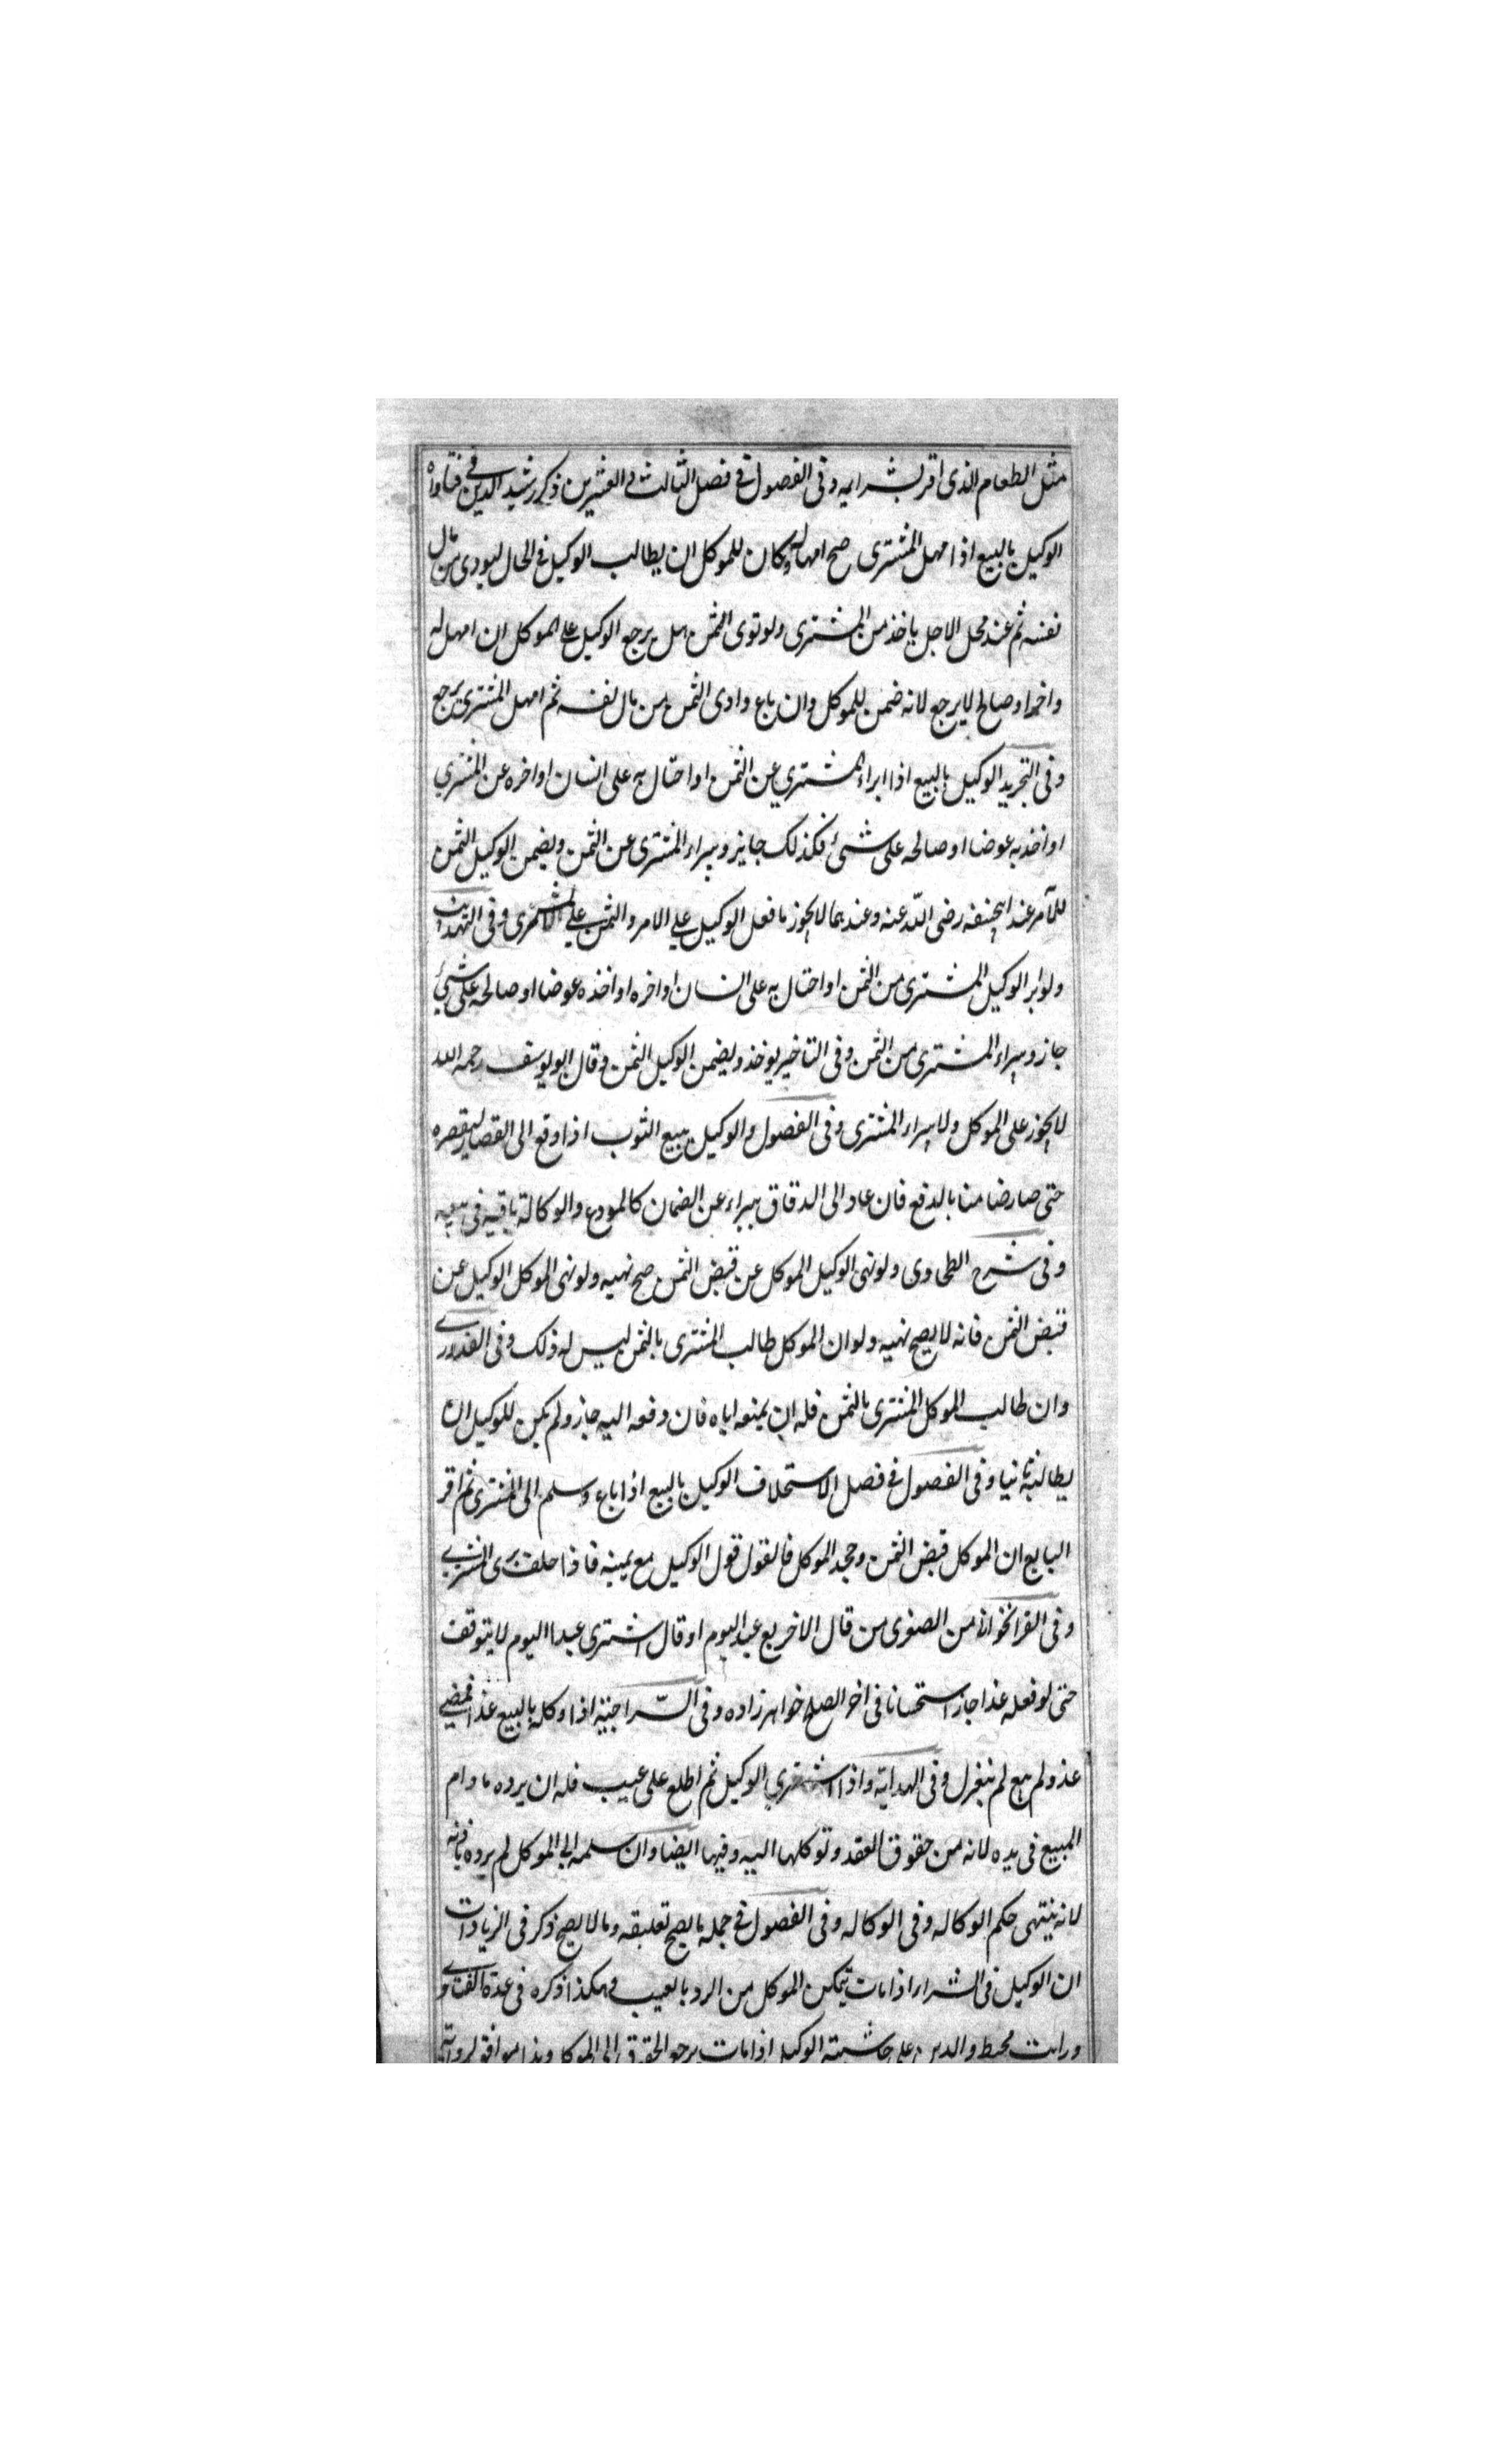 مثل الطعام الذى اقر بشرايه وفى الفصول فى فصل الثالث و العشرين ذكر رشيد الدين فى فتاواه
الوكيل بالبيع اذا امهل المشترى صح امهاله وكان للموكل ان يطالب الوكيل فى الحال ليودى من مال
نفسه ثم عند محل الاجل ياخذ من المشترى ولو توى الثمن هل يرجع الوكيل على الموكل ان امهل له
واخر او صالح لا يرجع لانه ضمن للموكل وان باع وادى الثمن من مال نفسه ثم امهل المشترى يرجع
وفى التجريد الوكيل بالبيع اذا ابراء المشتري عن الثمن او احتال به على انسان او اخره عن المشتري
او اخذ به عوضا او صالحه على شئ فكذلك جايز ويبراء المشترى عن الثمن ويضمن الوكيل الثمن
للآمر عند ابيحنيفه رضى الله عنه وعندهما لا يجوز ما فعل الوكيل على الامر والثمن على المشترى وفى التهذيب
ولو ابر الوكيل المشترى من الثمن او احتال به على انسان او اخره او اخذه عوضا او صالحه على شئ
جاز ويبراء المشترى من الثمن وفى التاخير يوخذ ويضمن الوكيل الثمن وقال ابو يوسف رحمه الله
لا يجوز على الموكل ولا يبراء المشترى وفى الفصول والوكيل ببيع الثوب اذا وقع الى القصار ليقصره
حتى صار ضامنا بالدفع فان عاد الى الدقاق يبراء عن الضمان كالمودع والوكالة باقيه فى بيعه
وفى شرح الطحاوى ولو نهى الوكيل الموكل عن قبض الثمن صح نهيه ولو نهى الموكل الوكيل عن
قبض الثمن فانه لا يصح نهيه ولو ان الموكل طالب المشترى بالثمن ليس له ذلك وفى القدورى
وان طالب الموكل المشترى بالثمن فله ان يمنعه اياه فان دفعه اليه جاز ولم يكن للوكيل ان
يطالبه ثانيا وفى الفصول فى فصل الاستحلاف الوكيل بالبيع اذا باع وسلم الى المشترى ثم اقر
البايع ان الموكل قبض الثمن وجحد الموكل فالقول قول الوكيل مع يمينه فاذا حلف برى المشترى
وفى القراخوانى من الصغرى من قال الاخر بع عبد اليوم او قال اشترى عبدا اليوم لا يتوقف
حتى لو فعله غدا جاز استحسانا فى اخر الصلح خواهرزاده وفى السراجيه اذا وكله بالبيع غدا فمضى
غد ولم يبع لم ينعزل وفى الهداية واذا اشتري الوكيل ثم اطلع على عيب فله ان يرده ما دام
المبيع فى يده لانه من حقوق العقد وتوكلها اليه وفيها ايضا وان سلمه الى الموكل لم يرده باذنه
لانه ينتهى حكم الوكاله وفى الوكاله وفى الفصول فى جمله ما يصح تعليقه وما لا يصح ذكر فى الزيادات
ان الوكيل فى الشرا اذا مات يتمكن الموكل من الرد بالعيب هكذا ذكره فى عدة الفتاوى
ورايت محيط والدين على حاشيته الوكيل اذا مات يرجع الحقوق الى الموكل وهذا موافق